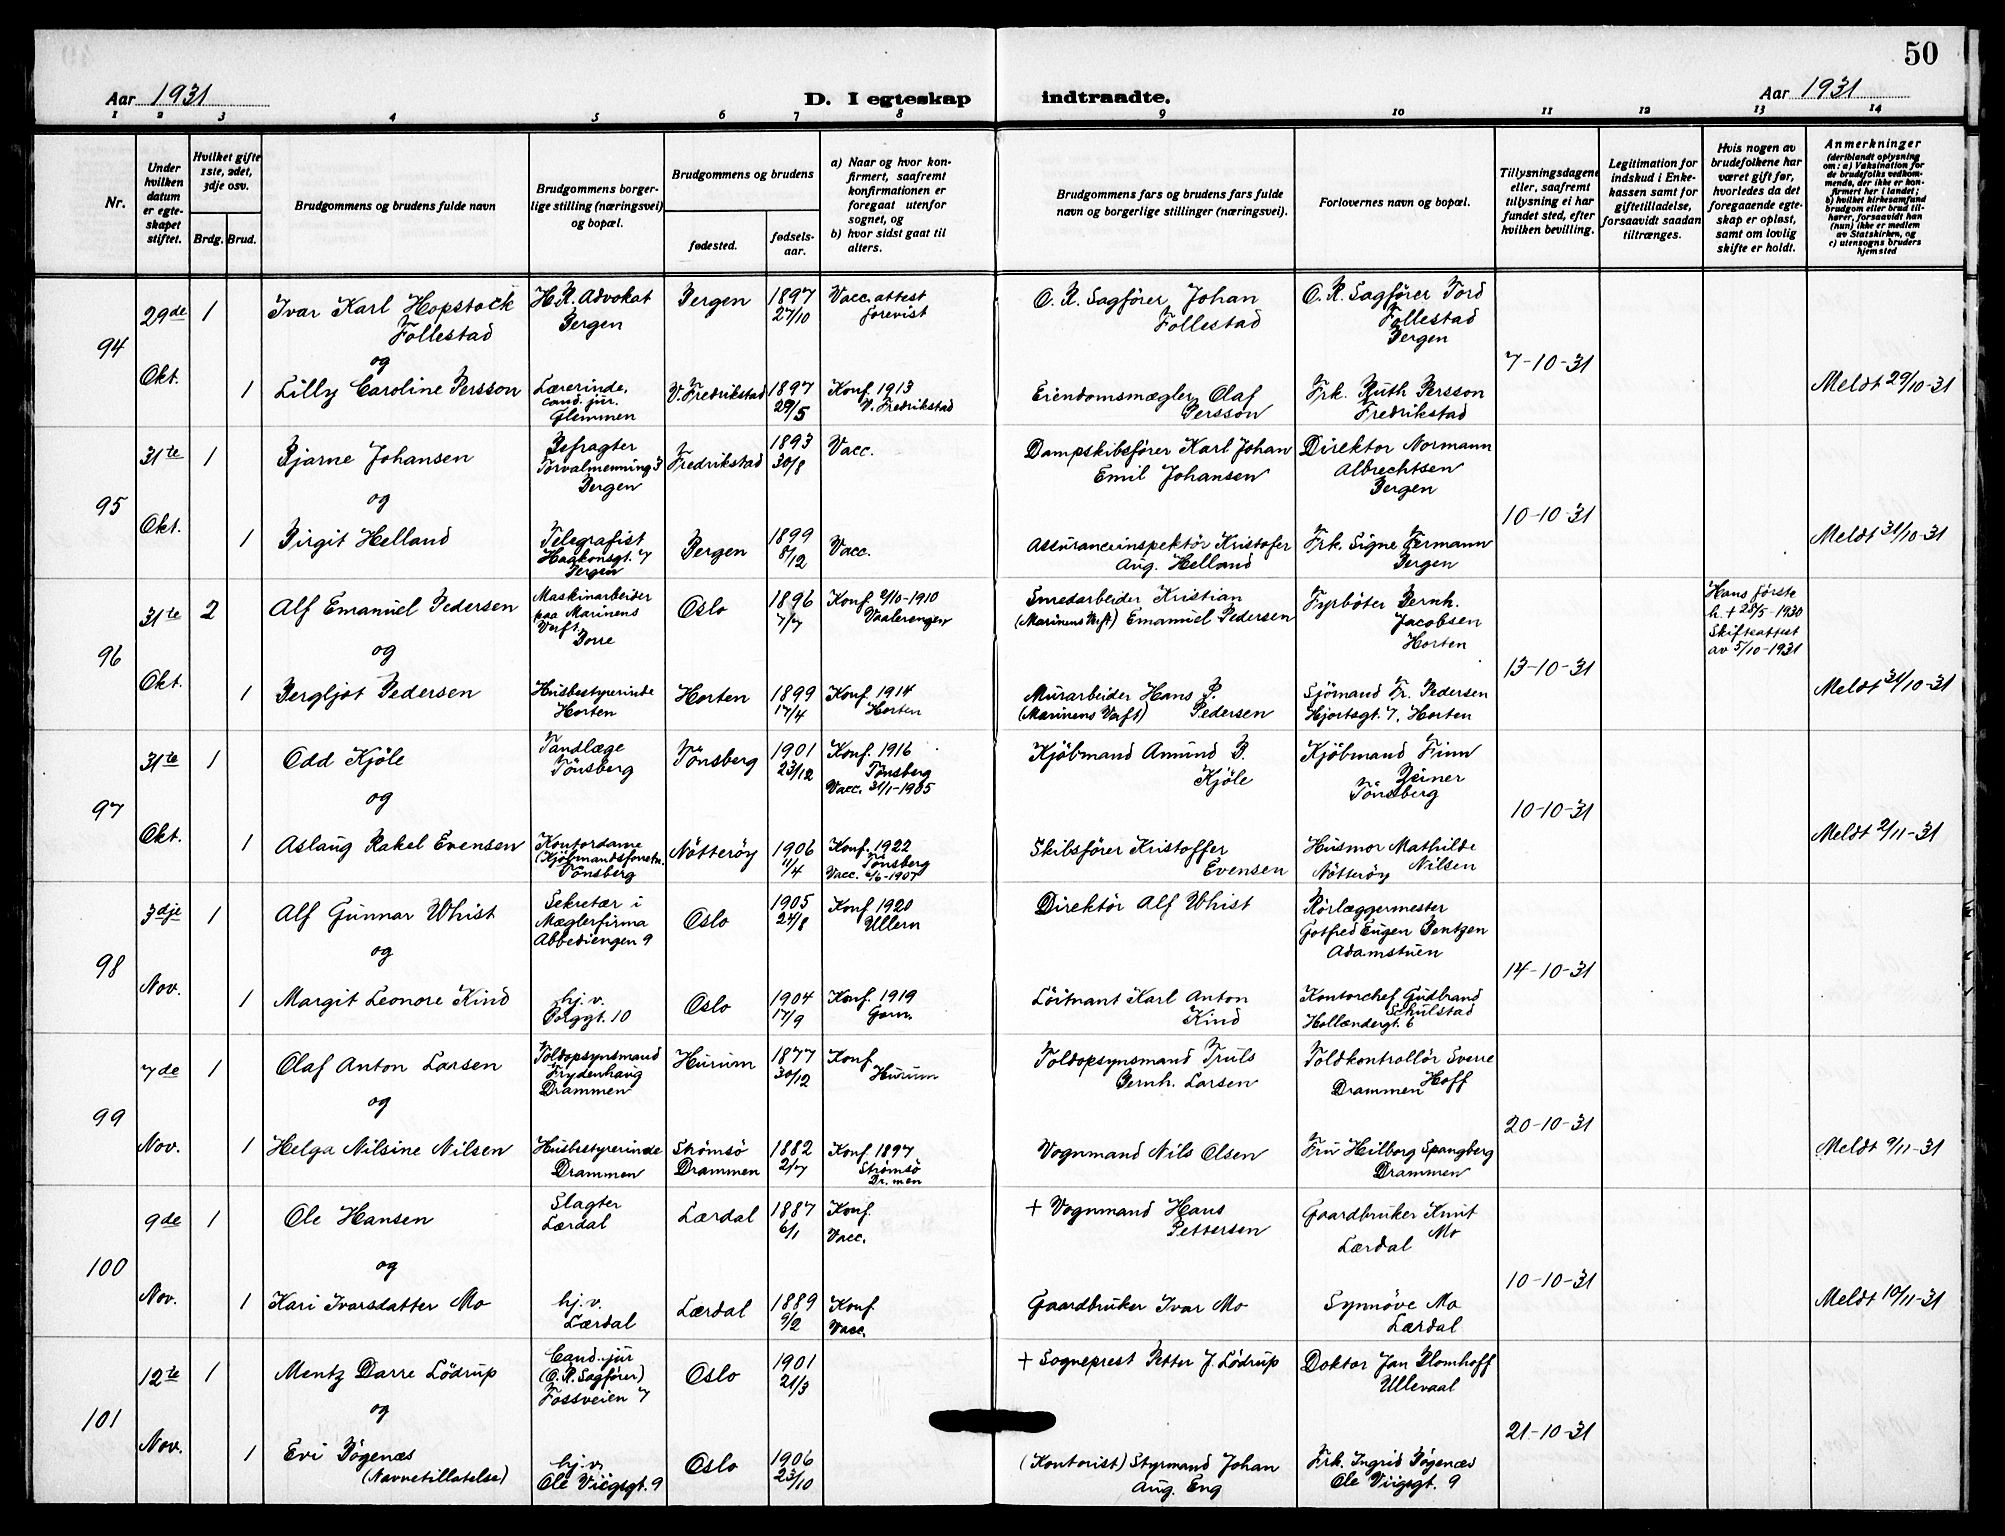 50
Aar 1931 D. I egteskap indtraadte. Aar 1931
1 2 3 4 5 6 7 8 9 10 11 12 13 14
Nr.
Under hvilken datum er egteskapet stiftet.
Hvilket gifte 1ste, 2det, 3dje osv.
Brdg. Brud.
Brudgommens og brudens fulde navn
Brudgommens borgerlige stilling (næringsvei) og bopæl.
Brudgommens og brudens
fødested. fødselsaar.
a) Naar og hvor konfirmert, saafremt konfirmationen er foregaat utenfor sognet, og
b) hvor sidst gaat til alters.
Brudgommens fars og brudens fars fulde navn og borgerlige stillinger (næringsvei).
Forlovernes navn og bopæl.
Tillysningsdagene eller, saafremt tillysning ei har fundet sted, efter hvilken bevilling.
Legitimation for indskud i Enkekassen samt for giftetilladelse, forsaavidt saadan tiltrænges.
Hvis nogen av brudefolkene har været gift før, hvorledes da det foregaaende egteskap er opløst, samt om lovlig skifte er holdt.
Anmerkninger
(deriblandt oplysning om: a) Vaksination for de brudefolks vedkommende, der ikke er konfirmert her i landet; b) hvilket kirkesamfund brudgom eller brud tilhører, forsaavidt han (hun) ikke er medlem av Statskirken, og c) utensogns bruders hjemsted
94
29de 1 Ivar Karl Hopstock Follestad
H.R. Advokat Bergen
Bergen 1897 27/10
Vacc. attest forevist
O. R. Sagfører Johan Follestad
O. R. Sagfører Tord Follestad Bergen
og
7-10-31
Okt. 1 Lilly Caroline Persson
Lærerinde, cand. jur. Glemmen
V. Fredrikstad 1897 29/5
Konf. 1913 V. Fredrikstad
Eiendomsmægler Olaf Persson
Frk. Ruth Persson Fredrikstad
Meldt 29/10-31
95
31te 1 Bjarne Johansen
Befragter Torvalmenning 3 Bergen
Fredrikstad 1893 30/8
Vacc.
Dampskibsfører Karl Johan Emil Johansen
Direktor Normann Albrechtsen Bergen
og
10-10-31
Okt. 1 Birgit Helland
Telegrafist Haakonsgt. 7 Bergen
Bergen 1899 8/12
Vacc.
Assuranceinspektör Kristofer Aug. Helland
Frk. Signe Fermann Bergen
Meldt 31/10-31
96
31te 2 Alf Emanuel Pedersen
Maskinarbeider paa Marinens Verft. Borre
Oslo 1896 7/7
Konf. 2/10-1910 Vaalerengen
Smedarbeider Kristian (Marinens Verft) Emanuel Pedersen
Fyrbøter Bernh. Jacobsen Horten
Hans første h. + 28/5-1930 Skifteattest av 5/10-1931
og
13-10-31
Okt. 1 Bergljot Pedersen
Husbestyrerinde Horten
Horten 1899 17/4
Konf. 1914 Horten
Murarbeider Hans P. (Marinens Verft) Pedersen
Sjömand Fr. Pedersen Hjortsgt. 7, Horten
Meldt 31/10-31
97
31te 1 Odd Kjöle
Tandlæge Tönsberg
Tönsberg 1901 23/12
Konf. 1916 Tönsberg Vacc. 31/1-1905
Kjöbmand Amund B. Kjöle
Kjöbmand Finn Reiner Tönsberg
og
10-10-31
Okt. 1 Aslaug Rakel Evensen
Kontordame (Kjöbmandsforretn. Tönsberg
Nötteröy 1906 11/4
Konf. 1922 Tönsberg Vacc. 6/6-1907
Skibsfører Kristoffer Evensen
Husmor Mathilde Nilsen Nötteröy
Meldt 2/11-31
98
3dje 1 Alf Gunnar Whist
Sekretær i Mæglerfirma Abbediengen 9
Oslo 1905 24/8
Konf 1920 Ullern
Direktör Alf Whist
Rörlæggermester Gotfred Eugen Bentzen Adamstuen
og
14-10-31
Nov. 1 Margit Leonore Kind
hj. v. Borggt. 10
Oslo 1904 17/9
Konf. 1919 Garn.
Löitnant Karl Anton Kind
Kontorchef Gudbrand Schulstad Hollændergt. 6
99
7de 1 Olaf Anton Larsen
Toldopsynsmand Frydenhaug Drammen
Hurum 1877 30/12
Konf Hurum
Toldopsynsmand Truls Bernh. Larsen
Toldkontrollör Sverre Hoff Drammen
og
20-10-31
Nov. 1 Helga Nilsine Nilsen
Husbestyrerinde Drammen
Strömsö Drammen 1882 2/7
Konf 1897 Strömsö Dr.men
Vognmand Nils Olsen
Fru Hilborg Spangberg Drammen
Meldt 9/11-31
100
9de 1 Ole Hansen
Slagter Lærdal
Lærdal 1887 6/1
Konf. Vacc.
+ Vognmand Hans Pettersen
Gaardbruker Knut Mo Lærdal
og
10-10-31
Nov. 1 Kari Ivarsdatter Mo
hj. v. Lærdal
Lærdal 1889 9/2
Konf. Vacc.
Gaardbruker Ivar Mo
Synnöve Mo Lærdal
Meldt 10/11-31
101
12te 1 Mentz Darre Lödrup
Cand. jur (O. R. Sagfører) Fossveien 7
Oslo 1901 21/3
+ Sogneprest Petter J. Lödrup
Doktor Jan Blomhoff Ullevaal
og
21-10-31
Nov. 1 Evi Bögenæs (Navnetillatelse)
hj. v. Ole Viigsgt. 9
Oslo 1906 23/10
(Kontorist) Styrmand Johan Aug. Eng
Frk. Ingrid Bögenæs Ole Viigsgt. 9